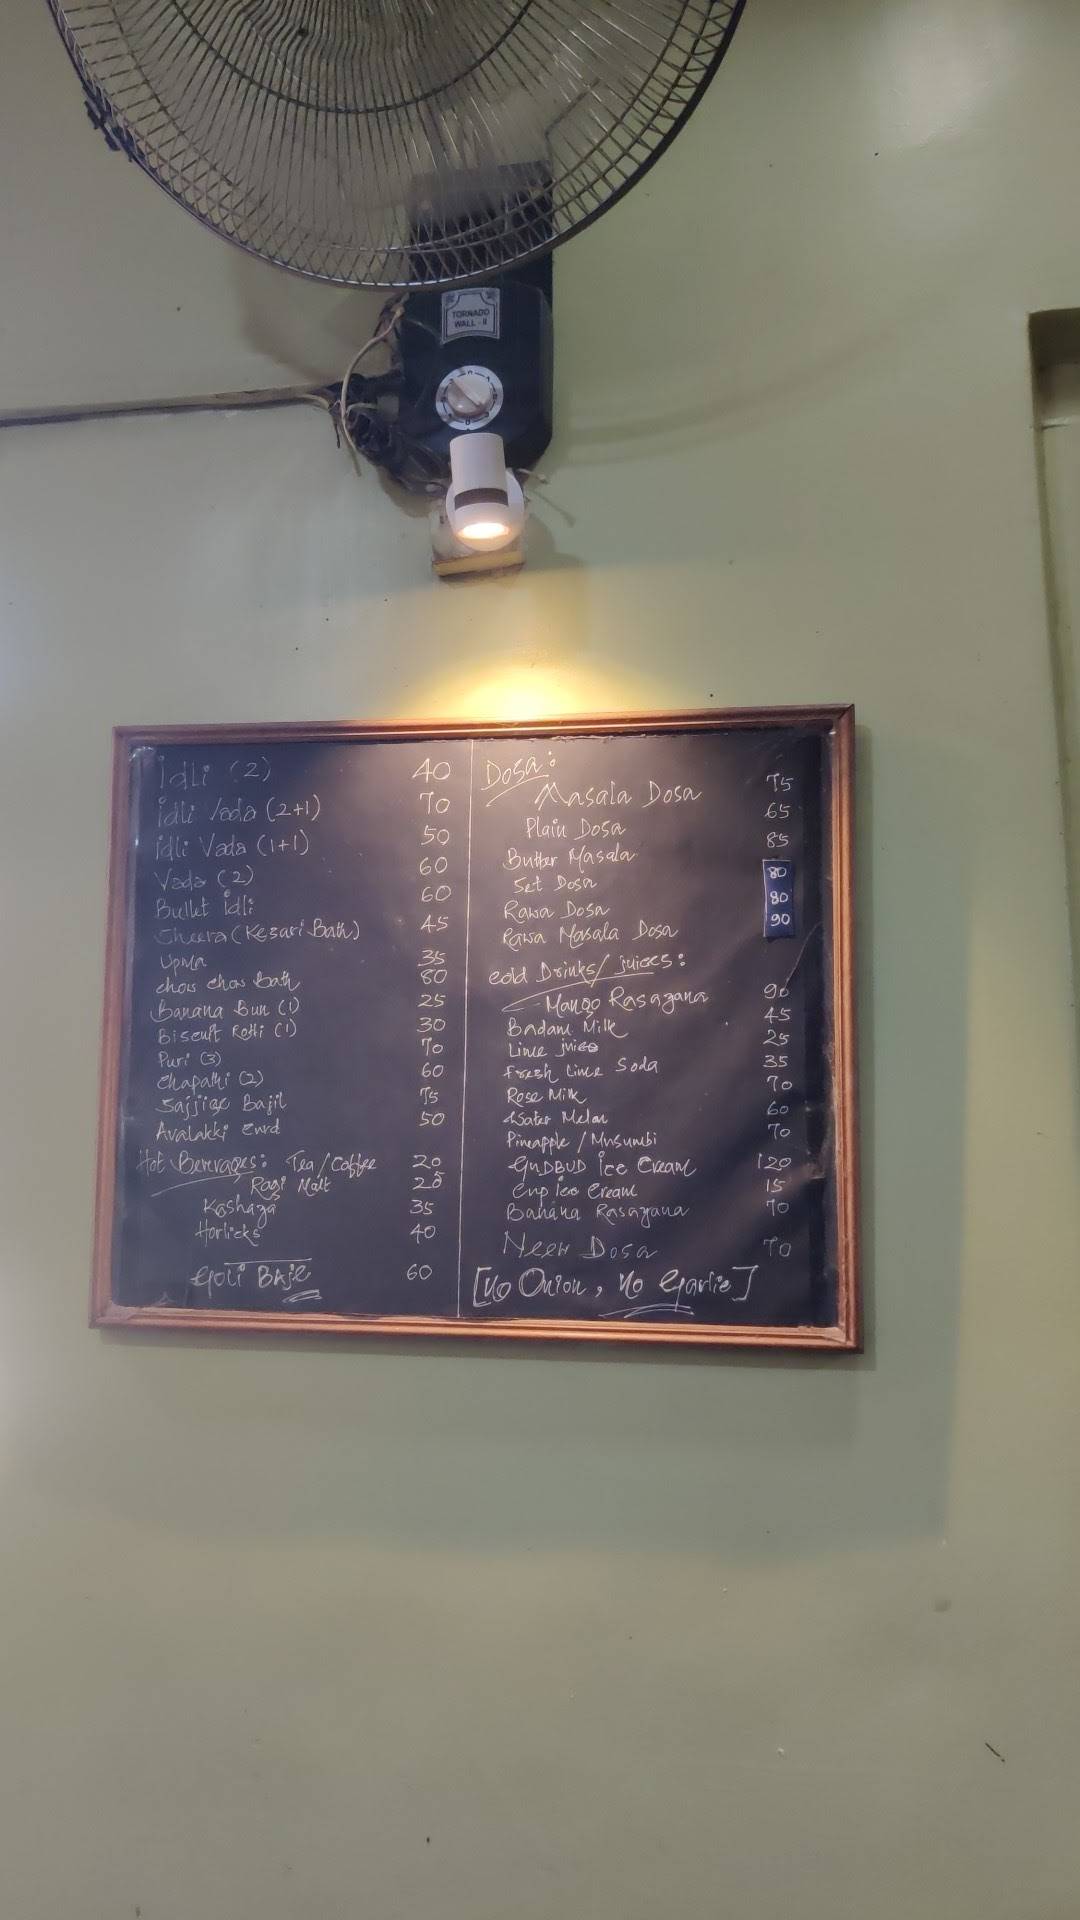 TORNADO
WALL - II
Idli (2) 40
Idli Vada (2+1) 70
Idli Vada (1+1) 50
Vada (2) 60
Bullet Idli 60
Sheera (Kesari Bath) 45
Upma 35
chow chow bath 80
Banana Bun (1) 25
Biscuit Rotti (1) 30
Puri (3) 70
Chapathi (2) 60
Sajjige Bajil 75
Avalakki Curd 50
Hot Beverages: Tea/Coffee 20
Ragi Malt 25
Kashaya 35
Horlicks 40
Goli BAJE 60
Dosa:
Masala Dosa 75
Plain Dosa 65
Butter Masala 85
Set Dosa 80
Rawa Dosa 80
Rawa Masala Dosa 90
Cold Drinks/juices:
Mango Rasayana 90
Badam Milk 45
Lime juice 25
Fresh Lime Soda 35
Rose Milk 70
Water Melon 60
Pineapple/Musumbi 70
GUDBUD Ice Cream 120
Cup Ice Cream 15
Banana Rasayana 70
Neer Dosa 70
[No Onion, No Garlic]